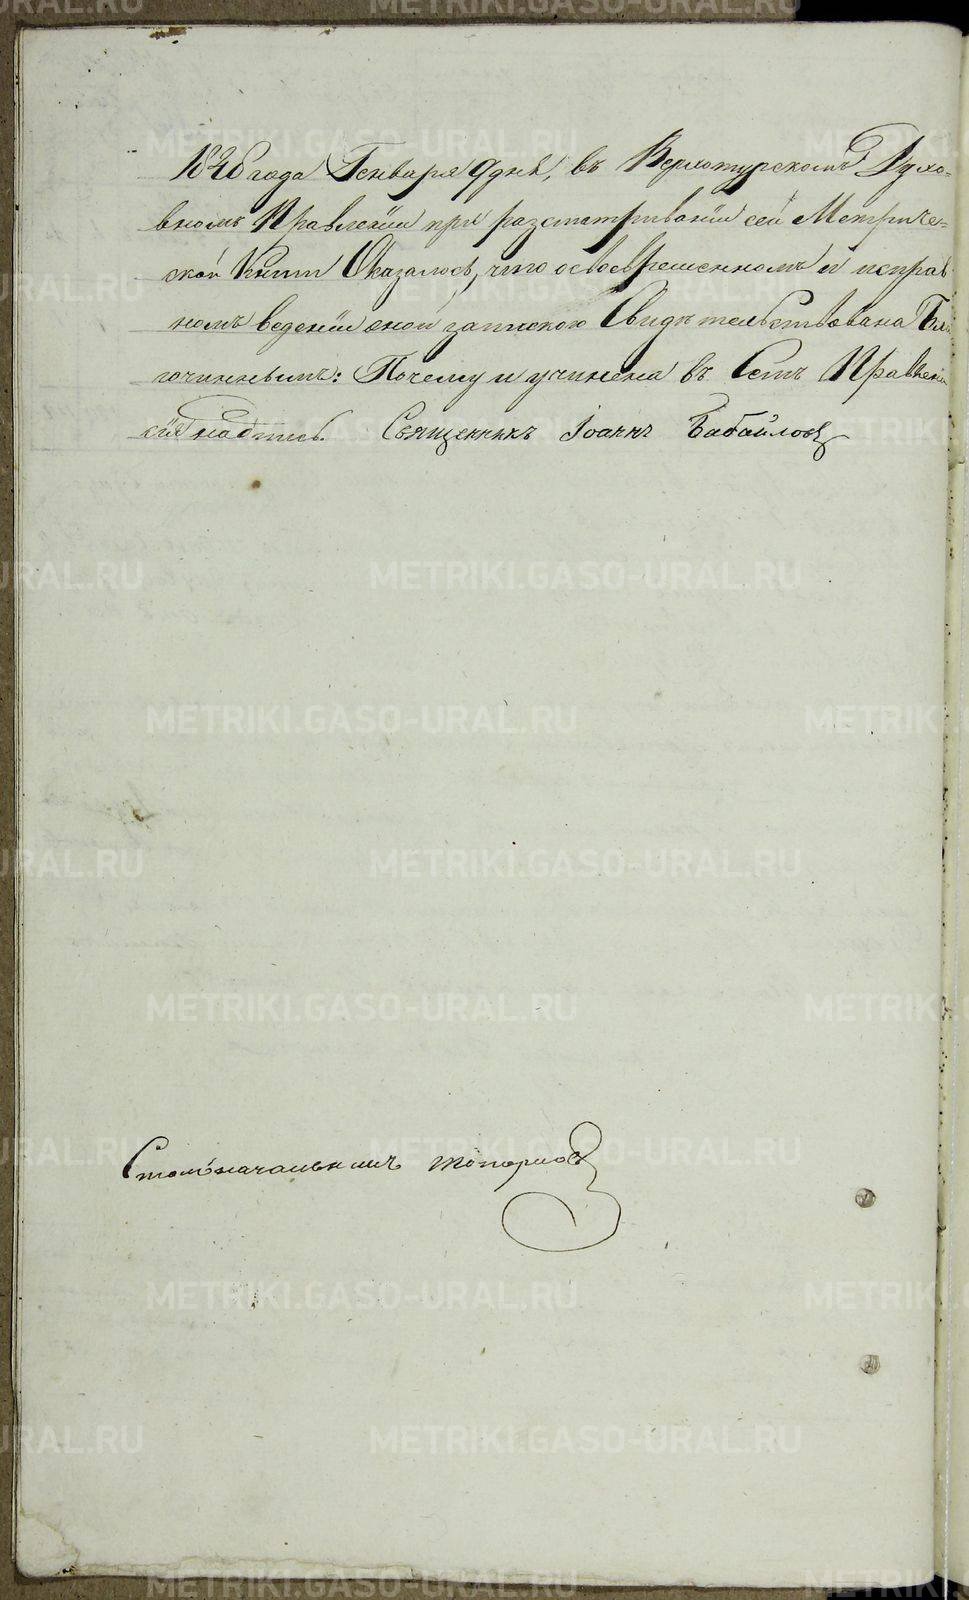 1846 года Генваря 9 дня, въ Верхотурскомъ Духо-
вномъ Правленіи при разсматриваніи сей Метриче-
ской Книги Оказалось, что освоевременномъ и исправ
номъ веденіи оной запискою Свидѣтельствована Бла
гочиннымъ: Почему и учинена въ Семъ Правленіи
сія надпись. Священникъ Іоаннъ Бабайловъ
Столоначальникъ Топорковъ
METRIKI.GASO-URAL.RU